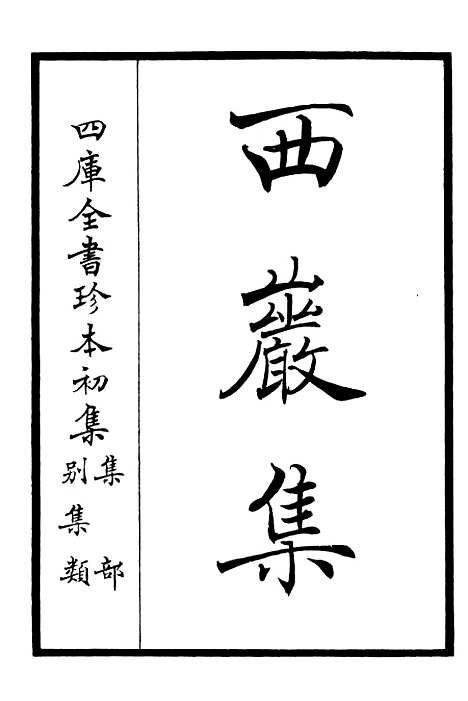 西巖集
四庫全書珍本初集
集部
别集類